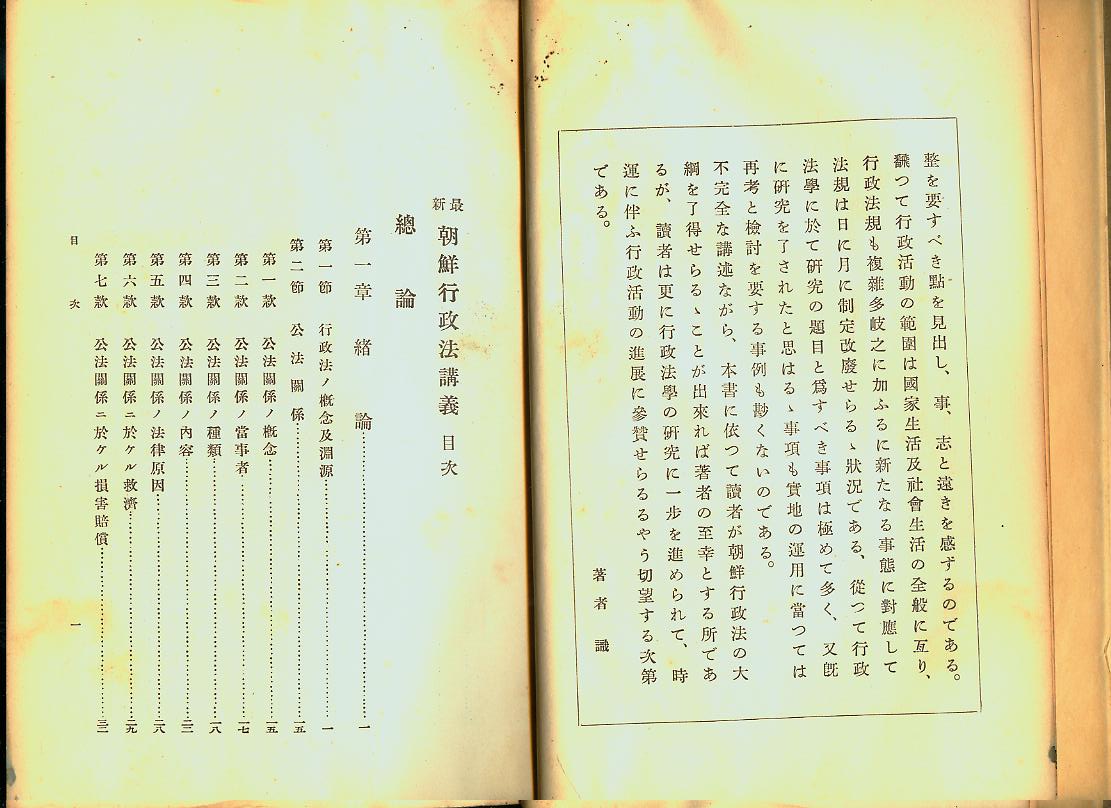 整を要すべき點を見出し、事、志と遠きを感ずるのである。
飜つて行政活動の範圍は國家生活及社會生活の全般に亙り、
行政法規も複雜多岐之に加ふるに新たなる事態に對應して
法規は日に月に制定改廢せらるゝ狀況である、從つて行政
法學に於て硏究の題目と爲すべき事項は極めて多く、又旣
に硏究を了されたと思はるゝ事項も實地の運用に當つては
再考と檢討を要する事例も尠くないのである。
不完全な講述ながら、本書に依つて讀者が朝鮮行政法の大
綱を了得せらるゝことが出來れば著者の至幸とする所であ
るが、讀者は更に行政法學の硏究に一步を進められて、時
運に伴ふ行政活動の進展に參贊せらるるやう切望する次第
である。
著者識
最新 朝鮮行政法講義 目次
總論
第一章 緖論……一
第一節 行政法ノ槪念及淵源……一
第二節 公法關係……一五
第一款 公法關係ノ槪念……一五
第二款 公法關係ノ當事者……一七
第三款 公法關係ノ種類……一八
第四款 公法關係ノ內容……
第五款 公法關係ノ法律原因……二八
第六款 公法關係ニ於ケル救濟……二九
第七款 公法關係ニ於ケル損害賠償……
目次 一